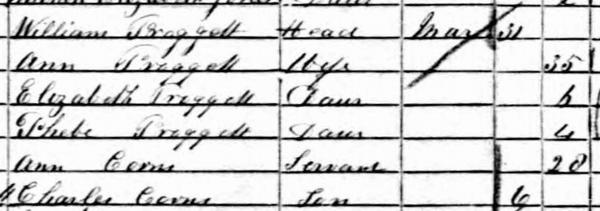 William Proggett Head Mar 31
Ann Proggett Wife 35
Elizabeth Proggett Daur 6
Phebe Proggett Daur 4
Ann Corns Servant 28
Charles Corns Son 6